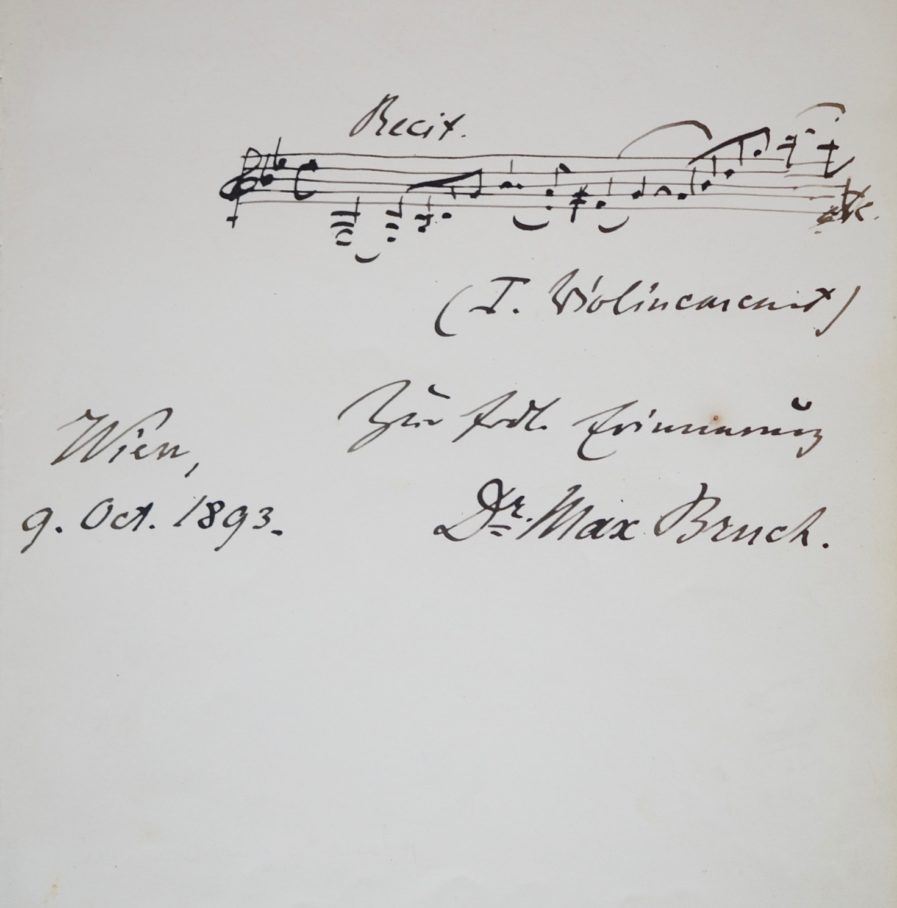 Recit.
etc.
(I. Violinconcert)
Zur frdl. Erinnerung
Wien,
9. Oct. 1893.
Dr. Max Bruch.